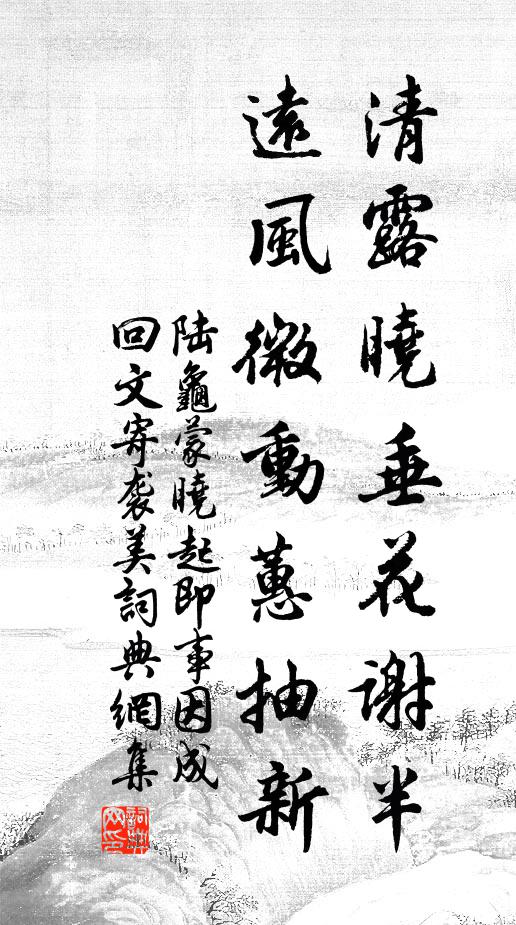 清露曉垂花謝半
遠風微動蕙抽新
陸龜蒙曉起即事因成
回文寄袭美詞典網集
詞典
网印